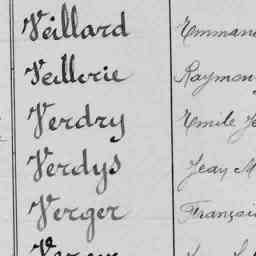 Veillard Emman
Veillerie Raymon
Verdry Emile Je
Verdys Jean M
Verger Françoi